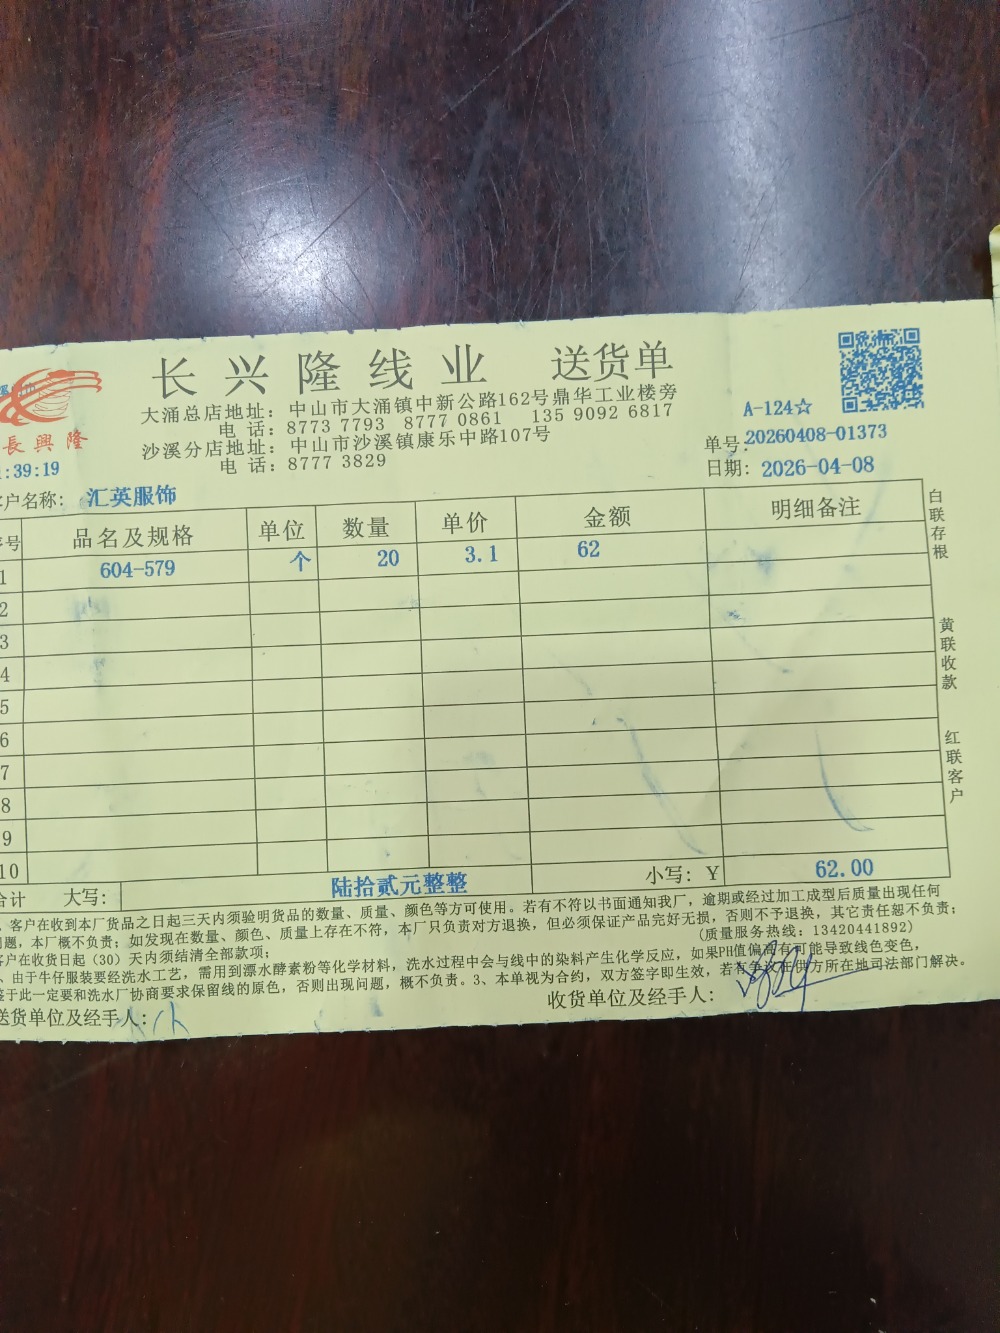 长兴隆线业 送货单
大涌总店地址：中山市大涌镇中新公路162号鼎华工业楼旁
电 话：8773 7793 8777 0861 135 9092 6817
沙溪分店地址：中山市沙溪镇康乐中路107号
电 话：8777 3829
長興隆
:39:19
A-124☆
单号:20260408-01373
日期: 2026-04-08
户名称: 汇英服饰
号 品名及规格 单位 数量 单价 金额 明细备注
1 604-579 个 20 3.1 62
2
3
4
5
6
7
8
9
10
合计 大写: 陆拾贰元整整 小写: Y 62.00
白联存根
黄联收款
红联客户
客户在收到本厂货品之日起三天内须验明货品的数量、质量、颜色等方可使用。若有不符以书面通知我厂，逾期或经过加工成型后质量出现任何
问题，本厂概不负责；如发现在数量、颜色、质量上存在不符，本厂只负责对方退换，但必须保证产品完好无损，否则不予退换，其它责任恕不负责；
(质量服务热线：13420441892)
客户在收货日起（30）天内须结清全部款项；
、由于牛仔服装要经洗水工艺，需用到漂水酵素粉等化学材料，洗水过程中会与线中的染料产生化学反应，如果PH值偏高有可能导致线色变色，
鉴于此一定要和洗水厂协商要求保留线的原色，否则出现问题，概不负责。3、本单视为合约，双方签字即生效，若有争议在供方所在地司法部门解决。
送货单位及经手人：
收货单位及经手人：